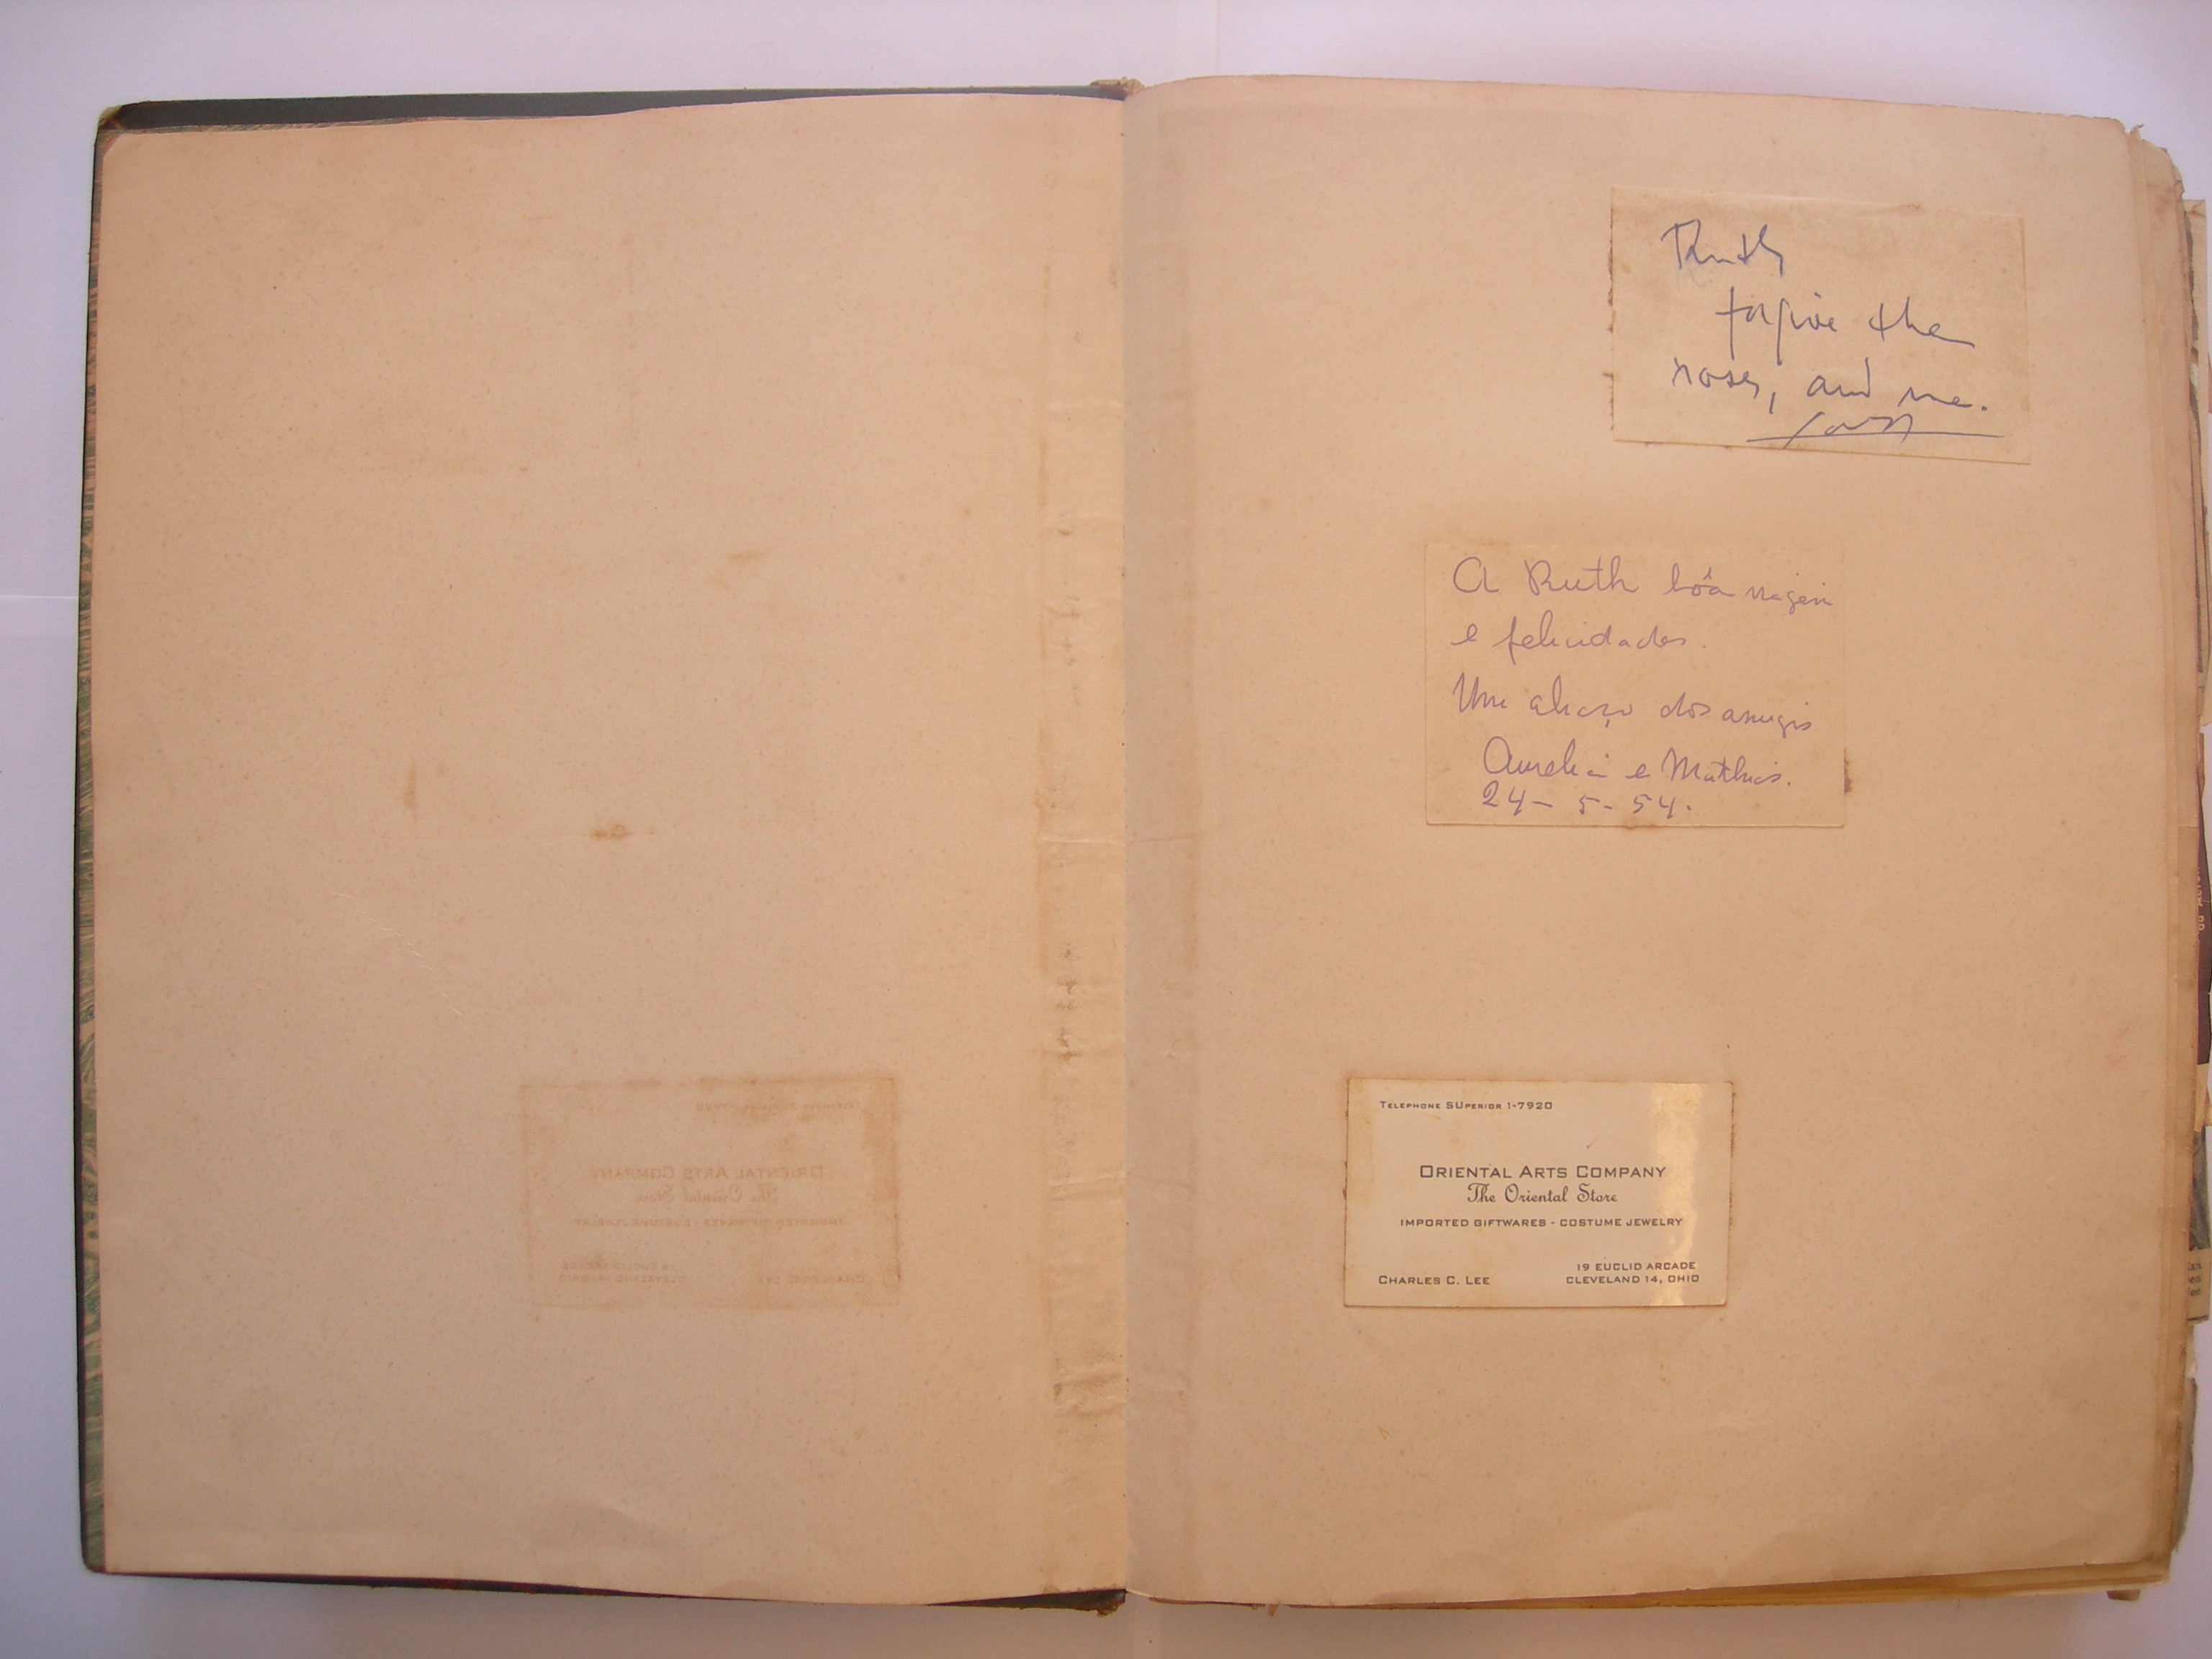 Ruth
forgive the
roses, and me.
A Ruth bôa viagem
e felicidades.
Um abraço dos amigos
Aurelia e Mathias.
24-5-54.
TELEPHONE SUPERIOR 1-7920
ORIENTAL ARTS COMPANY
The Oriental Store
IMPORTED GIFTWARES - COSTUME JEWELRY
CHARLES C. LEE
19 EUCLID ARCADE
CLEVELAND 14, OHIO